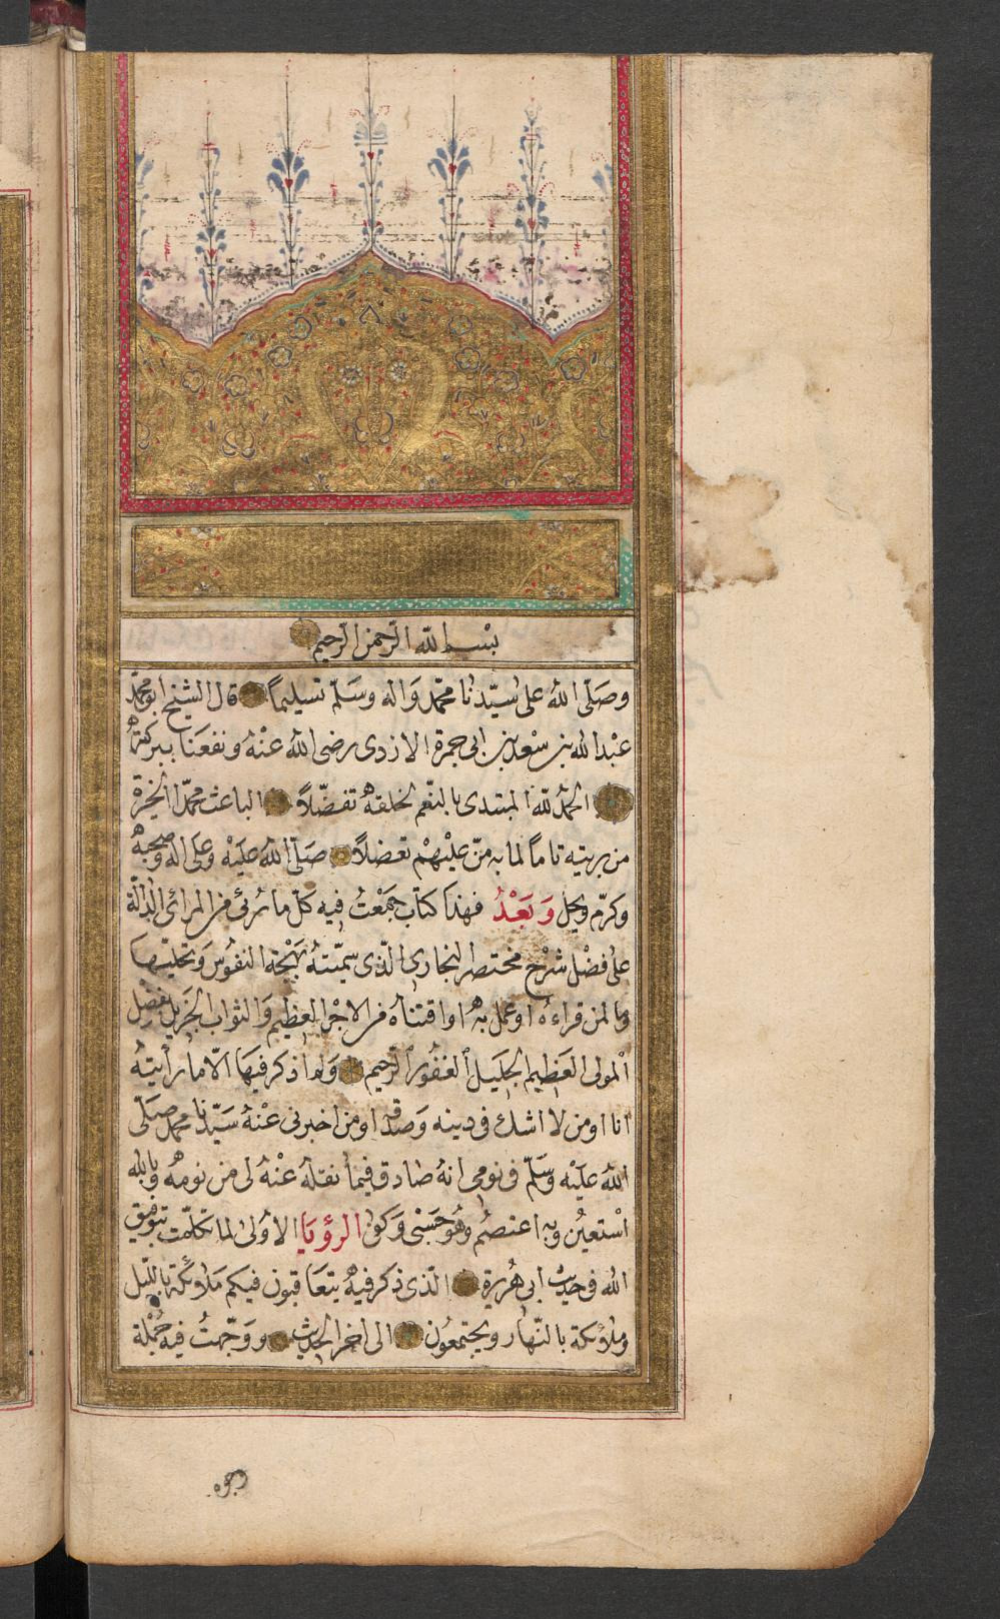 بسم الله الرحمن الرحيم
وصلى الله على سيدنا محمد وآله وسلم تسليما قال الشيخ ابو محمد
عبد الله بن سعد بن ابى جمرة الازدى رضى الله عنه ونفعنا ببركته
الحمد لله المبتدى بالنعم لخلقه تفضلاً الباعث محمدا الخيرة
من بريته تاما لما به من عليهم تفضلاً صلى الله عليه وعلى اله وصحبه
وكرم وبجل وَبَعْدُ فهذا كتاب جمعت فيه كل ما رئى من المرائى الدالة
على فضل شرح مختصر البخارى الذى سميته بهجة النفوس وتحليها
وما لمن قراءه او عمل به او اقتناه من الاجر العظيم والثواب الجزيل بفضل
المولى العظيم الجليل الغفور الرحيم ولم اذكر فيها الا ما رأيته
انا او من لا اشك فى دينه وصدقه او من اخبرنى عنه سيدنا محمد صلى
الله عليه وسلم فى نومى انه صادق فيما نقله عنه لى من نومه وبالله
استعين وبه اعتصم وهو حسبى وكفى الرؤيا الاولى لما تكلمت بتوفيق
الله فى حديث ابى هريرة الذى ذكر فيه يتعاقبون فيكم ملائكة بالليل
وملائكة بالنهار ويجتمعون الى اخر الحديث ووجهت فيه جملة